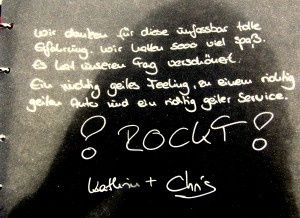 Wir danken für diese unfassbar tolle
Erfahrung. Wir hatten sooo viel Spaß.
Es hat unseren Tag verschönert.
Ein richtig geiles Feeling, in einem richtig
geilen Auto und ein richtig geiler Service.
! ROCKT !
Kathrin + Chris